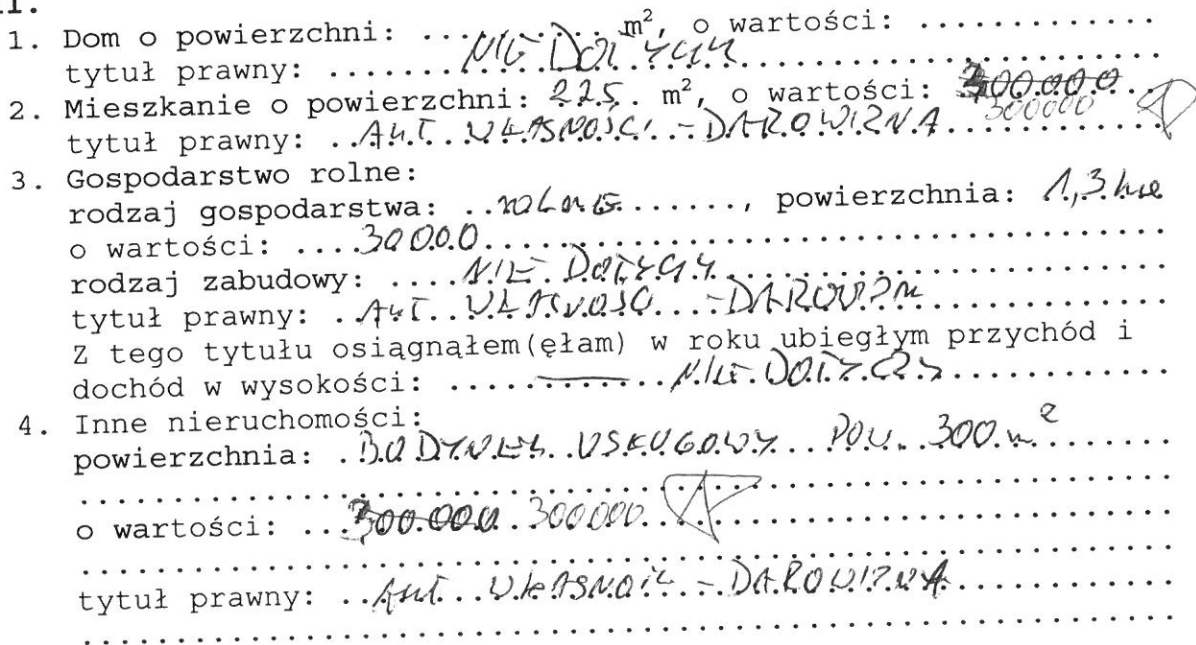 II.
1. Dom o powierzchni: ......... m², o wartości: .............
tytuł prawny: ....... NIE DOTYCZY .......
2. Mieszkanie o powierzchni: 225. m², o wartości: 300.000 300000
tytuł prawny: ..AKT. WŁASNOŚCI. - DAROWIZNA............
3. Gospodarstwo rolne:
rodzaj gospodarstwa: ..rolne......., powierzchnia: 1,3 ha
o wartości: ....30000.......................
rodzaj zabudowy: ....NIE DOTYCZY................
tytuł prawny: ..AKT. WŁASNOŚC....-DAROWIZN............
Z tego tytułu osiągnąłem(ęłam) w roku ubiegłym przychód i
dochód w wysokości: ............ NIE DOTYCZY.............
4. Inne nieruchomości:
powierzchnia: .BUDYNEK..USŁUGOWY...POW..300.m².......
o wartości: ...300.000. 300000................
tytuł prawny: ..AKT...WŁASNOŚĆ.-.DAROWIZNA............